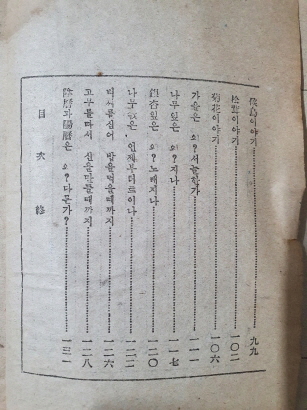 候鳥이야기……九九
松蕈이야기……一〇二
菊花이야기……一〇六
가을은 왜? 서늘한가……一一一
나무잎은 왜? 지나……一一七
銀杏잎은 왜? 노래지나……一二〇
나무잎은 언제부터드르이나……一二二
벼씨를심어 밥을먹을때까지……一二六
고구를따서 신을만들때까지……一二八
陰曆과陽曆은 왜? 다른가?……一三一
目次終